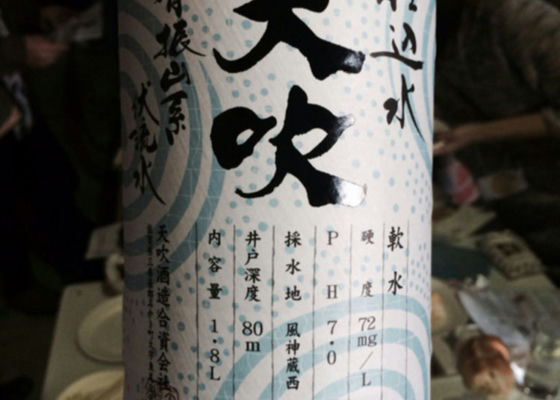 仕込水
天吹
背振山系
伏流水
軟水
硬度 72mg/L
PH 7.0
採水地 風神蔵西
井戸深度 80m
内容量 1.8L
天吹酒造合資会社